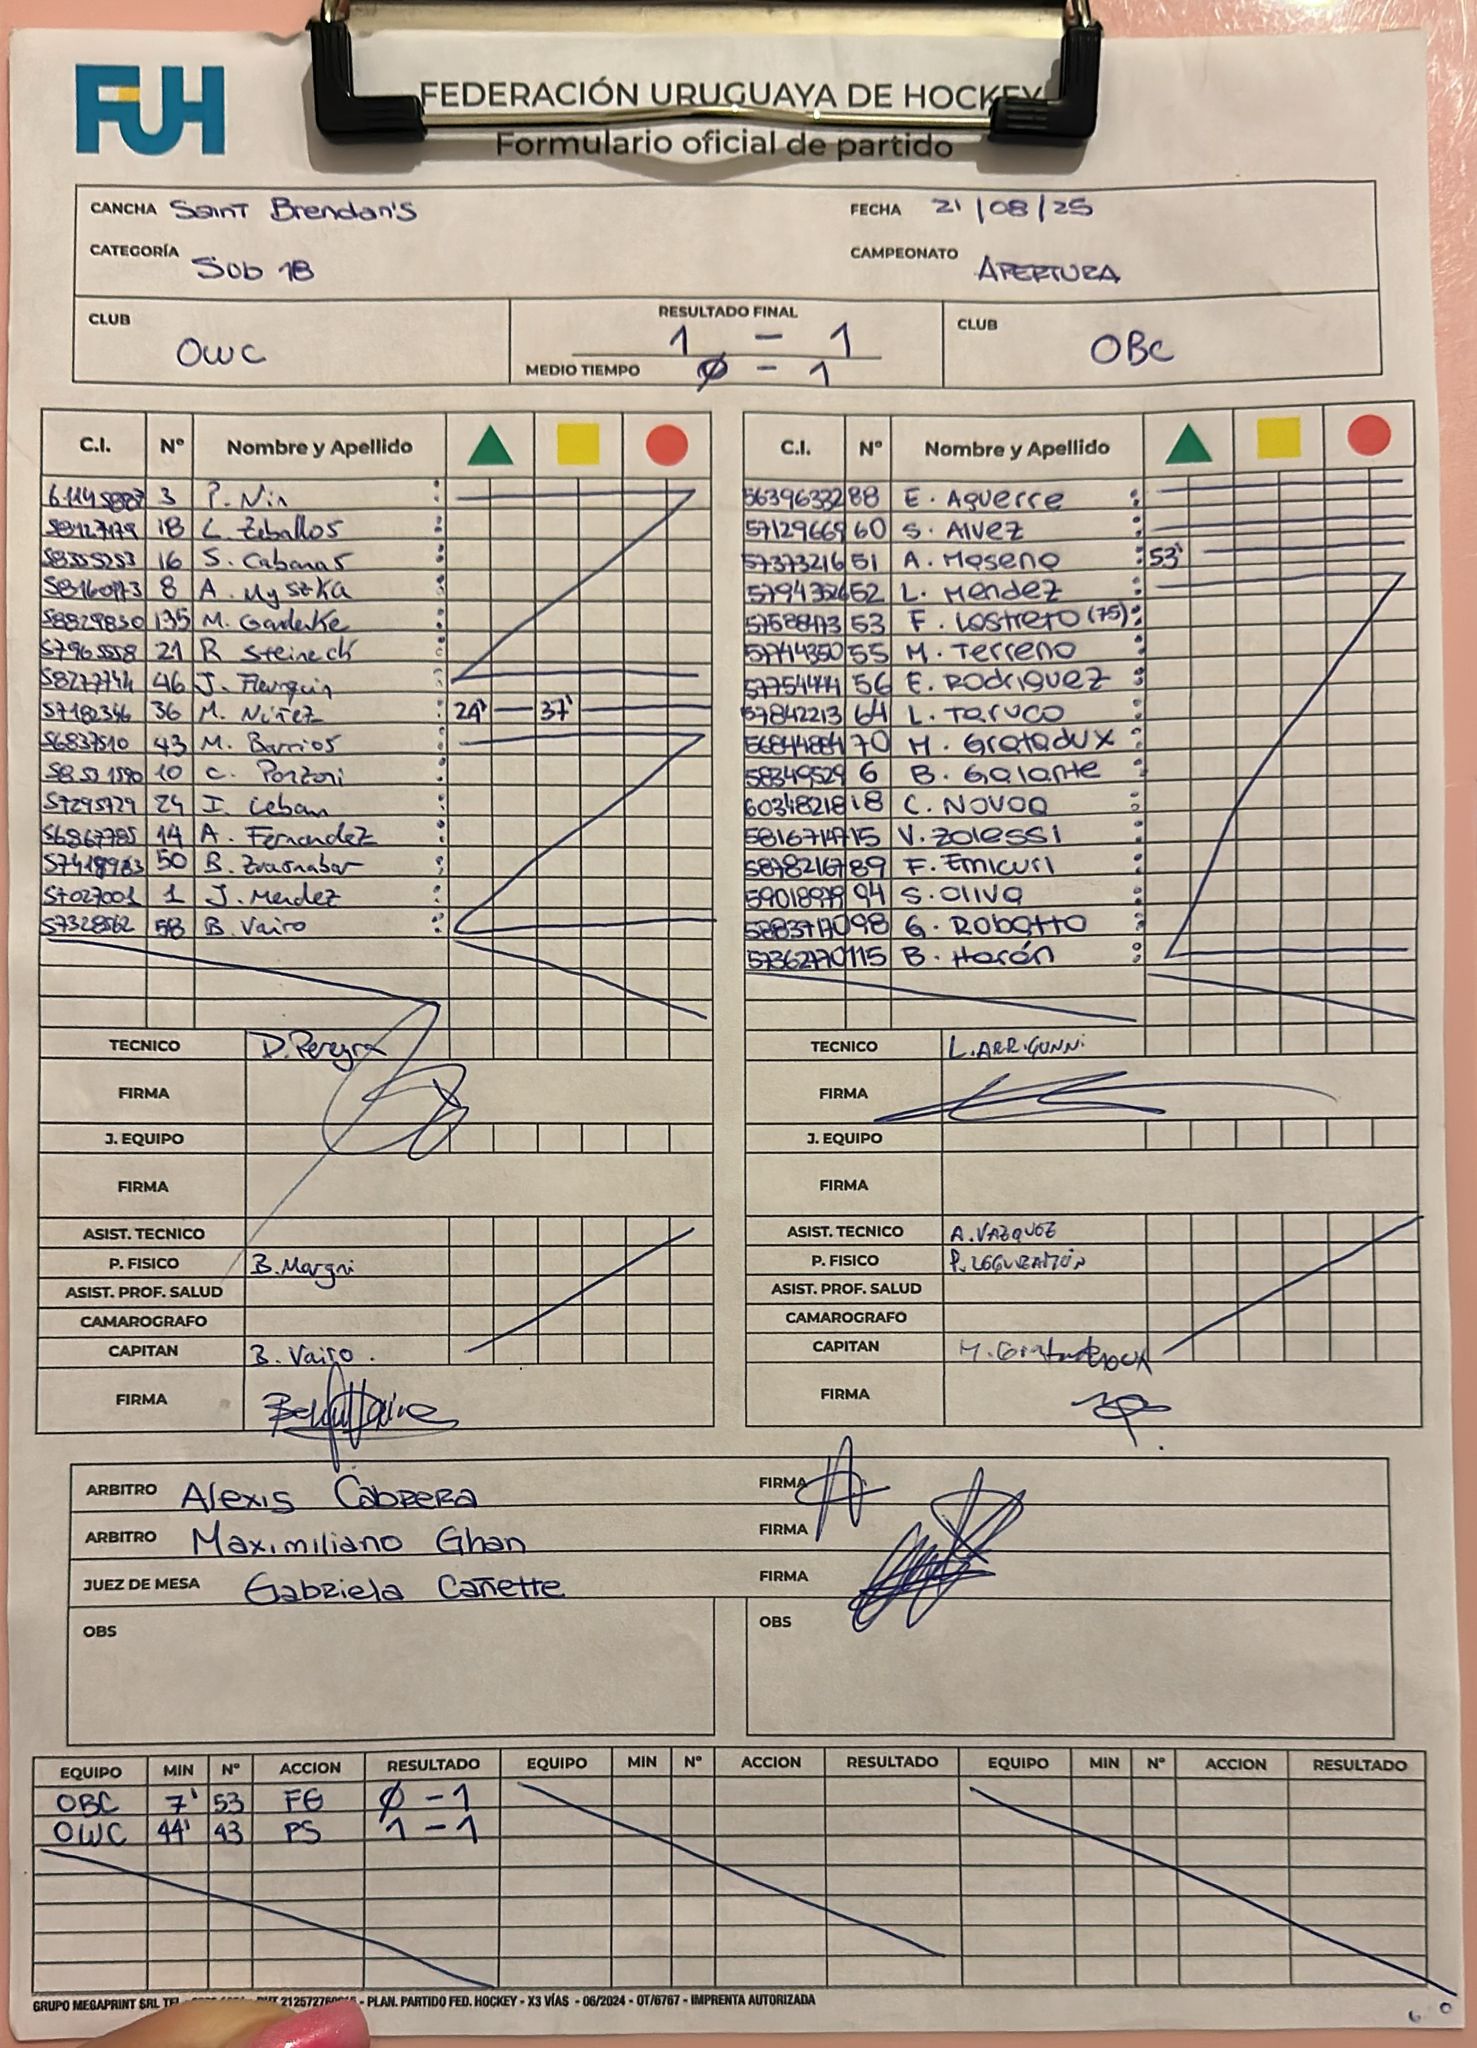 FUH
FEDERACIÓN URUGUAYA DE HOCKEY
Formulario oficial de partido
CANCHA Saint Brendan's FECHA 21/08/25
CATEGORÍA Sub 18 CAMPEONATO APERTURA
CLUB OWC RESULTADO FINAL 1 - 1 CLUB OBC
MEDIO TIEMPO Ø - 1
C.I. Nº Nombre y Apellido C.I. Nº Nombre y Apellido
3 P. Nin 56396332 88 E. Aguerre
18 L. Zeballos 57129669 60 S. Alvez
58355253 16 S. Cabanas 57373216 51 A. Moseno 53'
8 A. Myszka 52 L. Mendez
58829830 135 M. Gaederke 53 F. Lostreto (75)
57965558 21 R Steineck 57744350 55 M. Terreno
58277744 46 J. Fleurquin 56 E. Rodriguez
57182346 36 M. Núñez 24' 37' 57842213 64 L. Taruco
56837510 43 M. Barrios 56844884 70 M. Gratadux
10 C. Ponzoni 58349529 6 B. Galante
57295729 24 I. Ceban 60348218 18 C. Novoa
56867785 14 A. Fernandez 15 V. Zolessi
50 B. Zuasnabar 58782167 89 F. Emicuri
57027001 1 J. Mendez 59018979 94 S. Oliva
57328562 58 B. Vairo 98 G. Robatto
57362770 115 B. Harán
TECNICO D. Pereyra TECNICO L. ARRIGUNNI
FIRMA FIRMA
J. EQUIPO J. EQUIPO
FIRMA FIRMA
ASIST. TECNICO ASIST. TECNICO A. VAZQUEZ
P. FISICO B. Margni P. FISICO
ASIST. PROF. SALUD ASIST. PROF. SALUD
CAMAROGRAFO CAMAROGRAFO
CAPITAN B. Vairo. CAPITAN
FIRMA FIRMA
ARBITRO Alexis Cabrera FIRMA
ARBITRO Maximiliano Ghan FIRMA
JUEZ DE MESA Gabriela Cañette FIRMA
OBS OBS
EQUIPO MIN Nº ACCION RESULTADO EQUIPO MIN Nº ACCION RESULTADO EQUIPO MIN Nº ACCION RESULTADO
OBC 7' 53 FG Ø - 1
OWC 44' 43 PS 1 - 1
GRUPO MEGAPRINT SRL - PLAN. PARTIDO FED. HOCKEY - X3 VÍAS - 06/2024 - OT/6767 - IMPRENTA AUTORIZADA